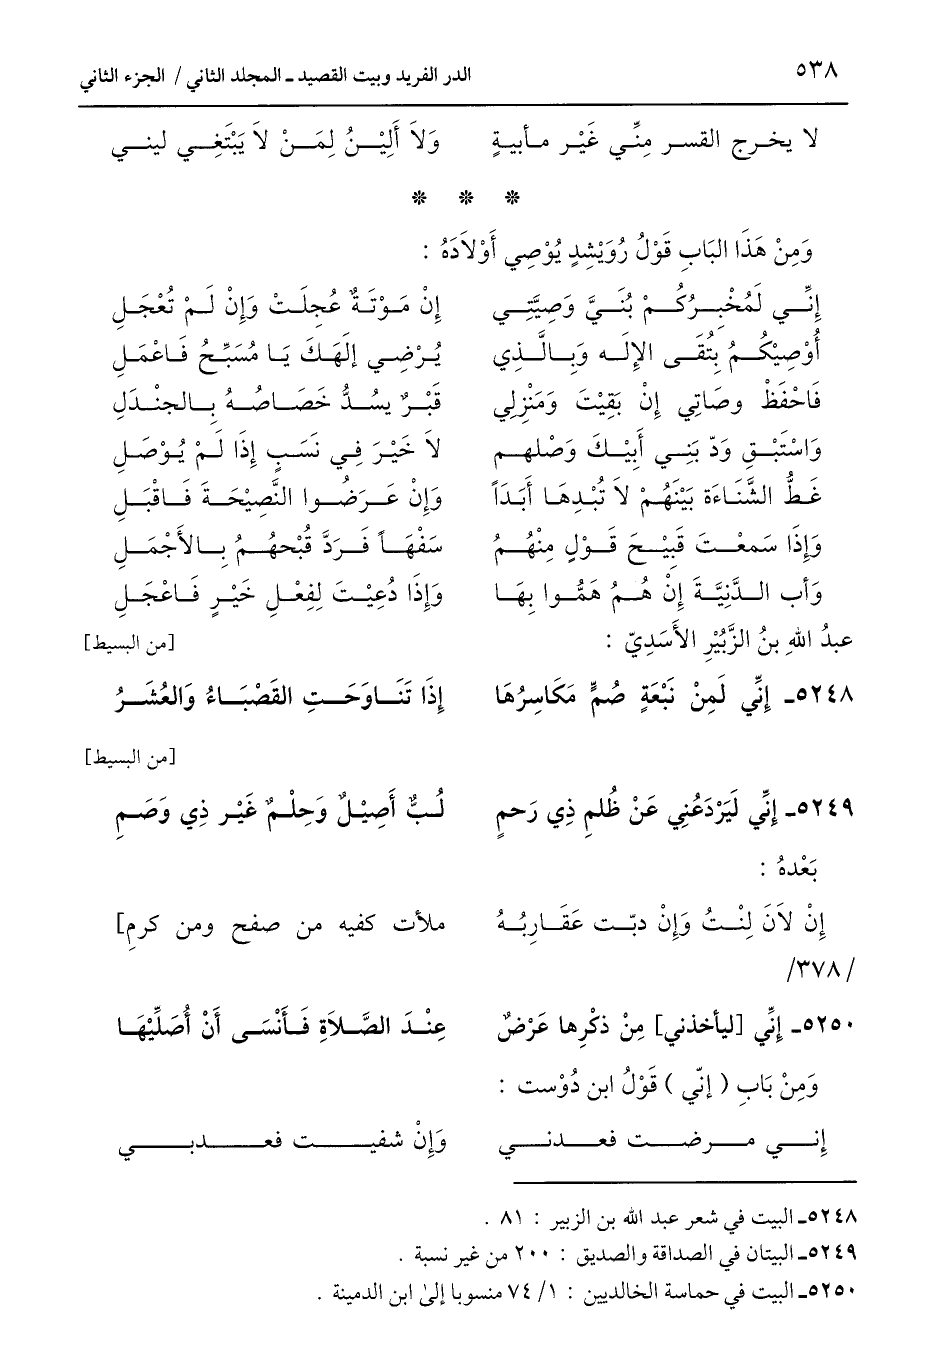 ٥٣٨ الدر الفريد وبيت القصيد ـ المجلد الثاني / الجزء الثاني
لا يخرج القسر مِنِّي غَيْر مأبيةٍ وَلاَ أَلِيْنُ لِمَنْ لاَ يَبْتَغِي ليني
* * *
وَمِنْ هَذَا البَابِ قَوْلُ رُوَيْشِدٍ يُوْصِي أَوْلاَدَهُ :
إِنِّي لَمُخْبِرُكُمْ بُنَيَّ وَصِيَّتِي إِنْ مَوْتَةٌ عُجلَتْ وَإِنْ لَمْ تُعْجَلِ
أُوْصِيْكُمُ بِتُقَى الإِلـه وَبَالَّذِي يُرْضِي إِلهَكَ يَا مُسَبِّحُ فَاعْمَلِ
فَاحْفَظْ وصَاتِي إِنْ بَقِيْتَ وَمَنْزِلِي قَبْرٌ يسُدُّ خَصَاصُهُ بِالجنْدَلِ
وَاسْتَبْقِ وَدّ بَنِي أَبِيْكَ وَصْلهِم لاَ خَيْرَ فِي نَسَبٍ إِذَا لَمْ يُوْصَلِ
غَطُّ الشَّنَاءَة بَيْنَهُمْ لاَ تُبْدِهَا أَبَدَاً وَإِنْ عَرَضُوا النَّصِيْحَةَ فَاقْبَلِ
وَإِذَا سَمعْتَ قَبِيْحَ قَوْلٍ مِنْهُمُ سَفْهَاً فَرَدَّ قُبْحهُمُ بِالأَجْمَلِ
وَأب الدَّنِيَّةَ إِنْ هُمُ هَمُّوا بِهَا وَإِذَا دُعِيْتَ لِفعْلِ خَيْرٍ فَاعْجَلِ
عبدُ اللهِ بنُ الزَّبِيْرِ الأَسَدِيّ : [من البسيط]
٥٢٤٨ـ إِنِّي لَمِنْ نَبْعَةٍ صُمٍّ مَكَاسِرُهَا إِذَا تَنَاوَحَتِ القَصْبَاءُ وَالعُشَرُ
[من البسيط]
٥٢٤٩ـ إِنِّي لَيَرْدَعُنِي عَنْ ظُلمِ ذِي رَحمٍ لُبٌّ أَصِيْلٌ وَحِلْمٌ غَيْر ذِي وَصَمِ
بَعْدهُ :
إِنْ لاَنَ لِنْتُ وَإِنْ دبّت عَقَارِبُهُ ملأت كفيه من صفح ومن كرمِ]
/ ٣٧٨/
٥٢٥٠ـ إِنِّي [ليأخذني] مِنْ ذكْرِها عَرْضٌ عِنْدَ الصَّلاَةِ فَأَنْسَى أَنْ أُصَلِّيْهَا
وَمِنْ بَابِ ( إنّي ) قَوْلُ ابن دُوْست :
إِنـي مـرضـت فعـدني وَإِنْ شفيـت فعـدبـي
٥٢٤٨ـ البيت في شعر عبد الله بن الزبير : ٨١ .
٥٢٤٩ـ البيتان في الصداقة والصديق : ٢٠٠ من غير نسبة .
٥٢٥٠ـ البيت في حماسة الخالديين : ١/ ٧٤ منسوبا إلىٰ ابن الدمينة .